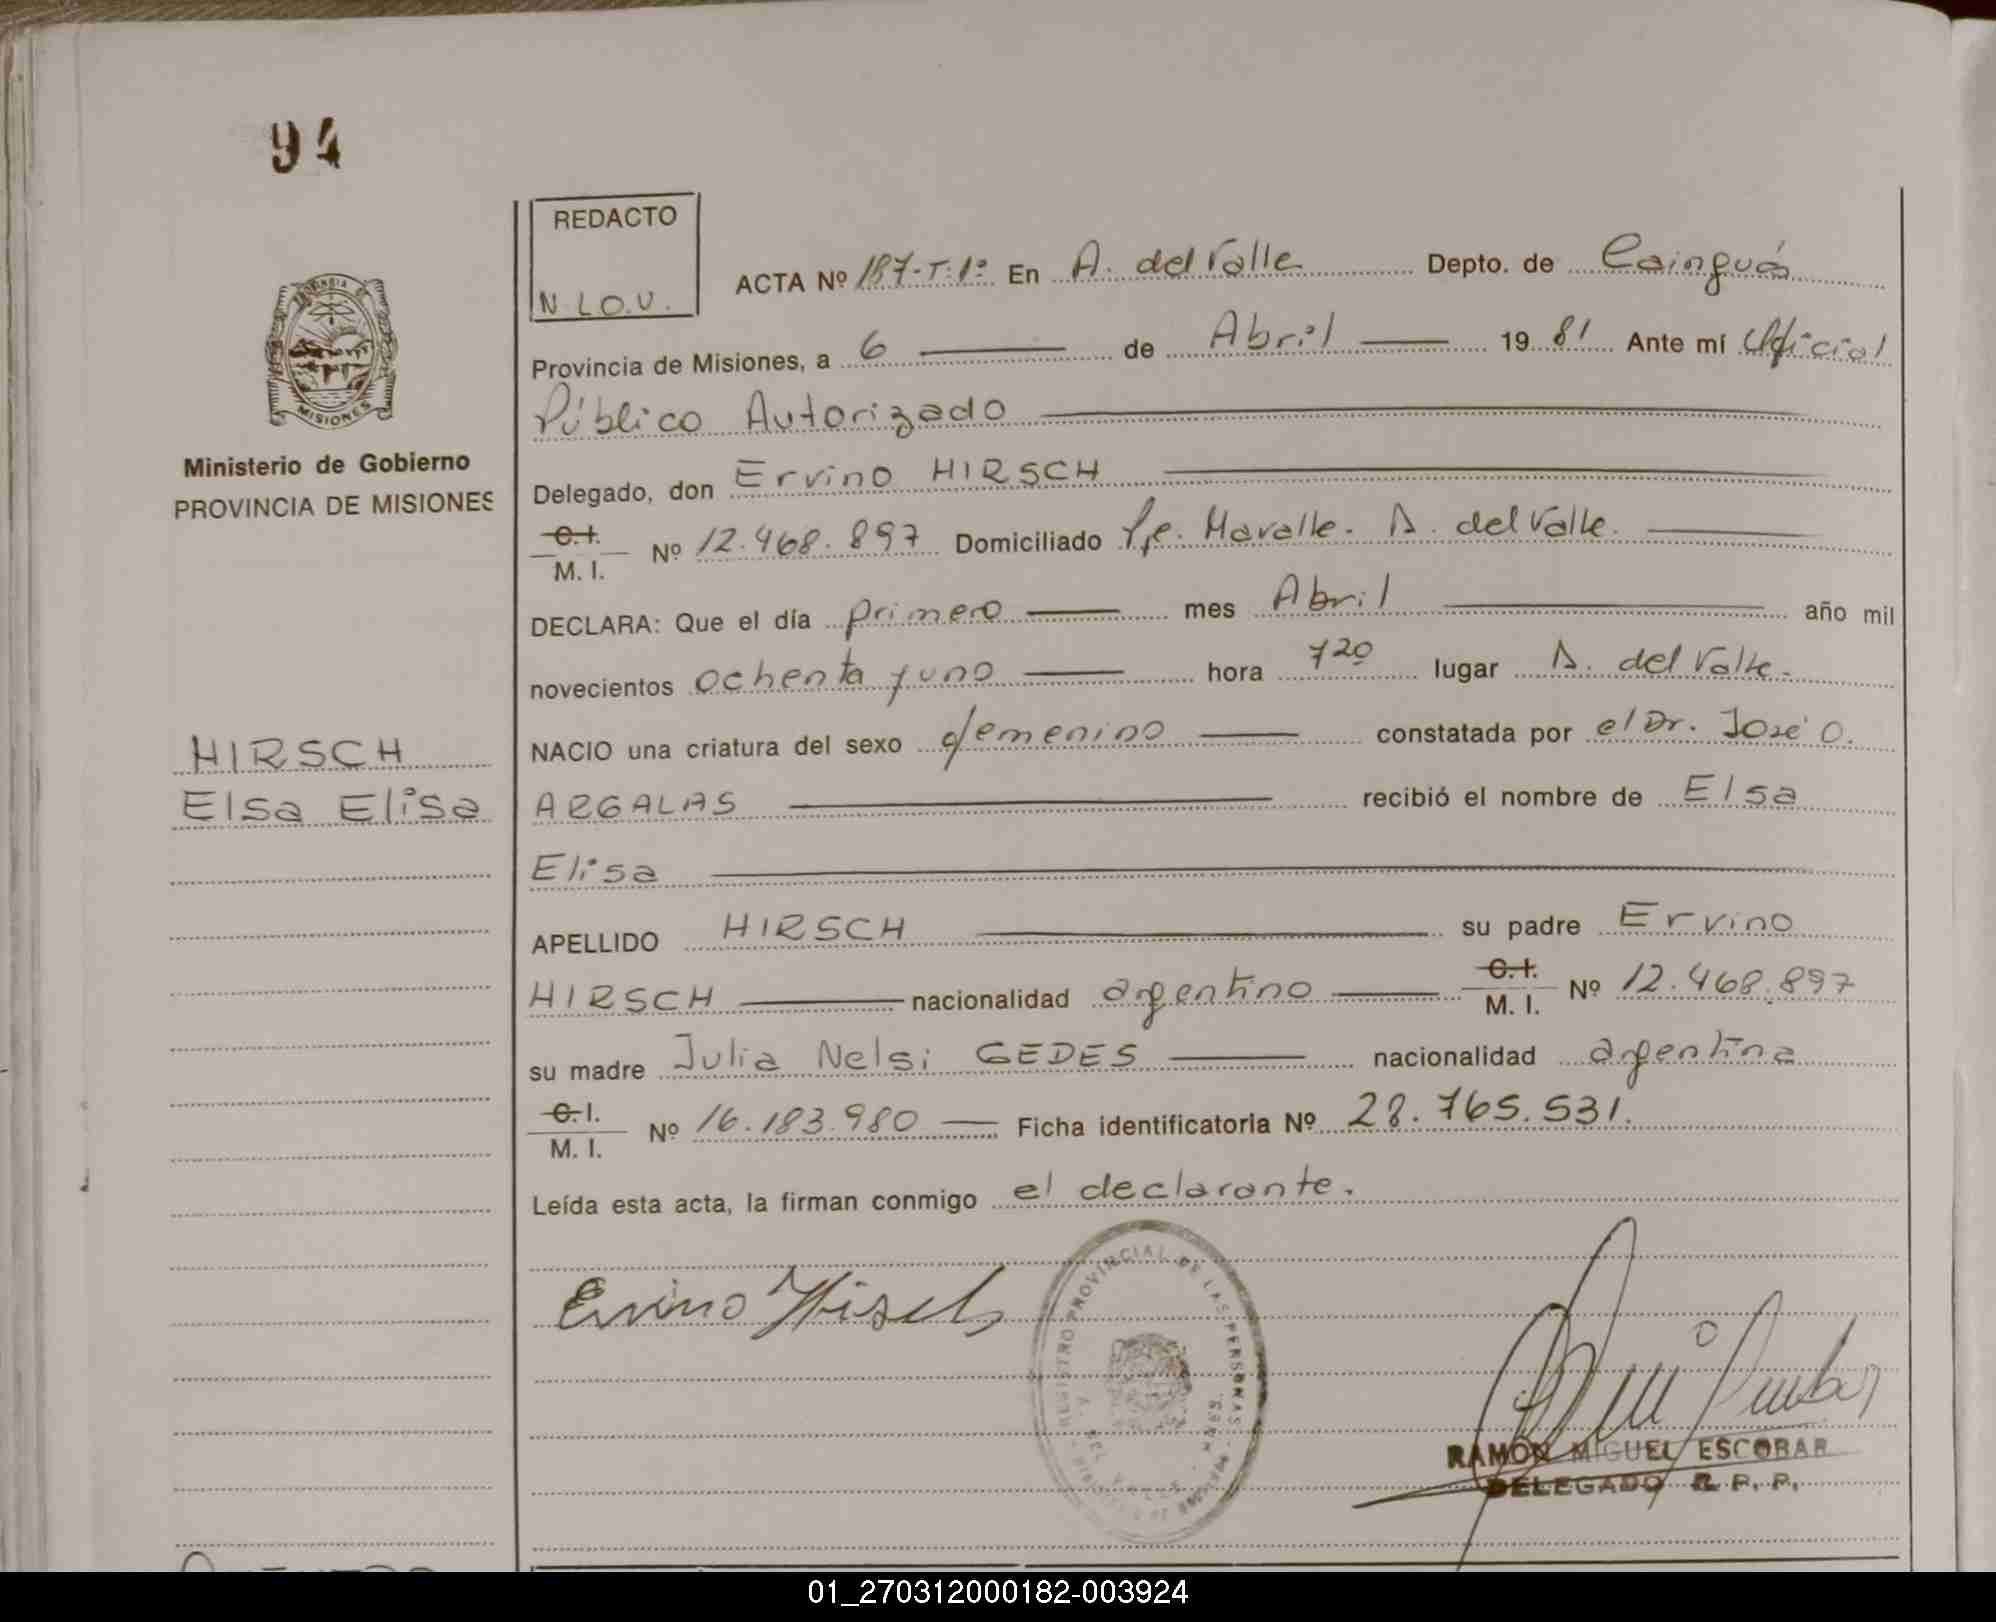 94
REDACTO
N.L.O.V.
ACTA Nº 187-T:1º En A. del Valle Depto. de Cainguás
Provincia de Misiones, a 6 de Abril 19 81 Ante mí Oficial
Público Autorizado
MISIONES
Ministerio de Gobierno
PROVINCIA DE MISIONES
Delegado, don Ervino HIRSCH
C.I.
M. I. Nº 12.468.897 Domiciliado Pje. Mavalle. A. del Valle.
DECLARA: Que el día primero mes Abril año mil
novecientos ochenta y uno hora 720 lugar A. del Valle.
HIRSCH
Elsa Elisa
NACIO una criatura del sexo femenino constatada por el Dr. José O.
ARGALAS recibió el nombre de Elsa
Elisa
APELLIDO HIRSCH su padre Ervino
HIRSCH nacionalidad argentino C.I. M. I. Nº 12.468.897
su madre Julia Nelsi GEDES nacionalidad argentina
C.I.
M. I. Nº 16.183.980 Ficha identificatoria Nº 28.765.531.
Leída esta acta, la firman conmigo el declarante.
Ervino Hirsch
REGISTRO PROVINCIAL DE LAS PERSONAS
RAMÓN MIGUEL ESCOBAR
DELEGADO R. P. P.
01_270312000182-003924